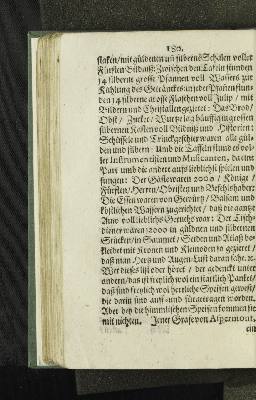 180.
staken/ mit güldenen uñ silbernē Schalen voller
Fürsten Bildnis: Zwischen den Tafeln stunden
14 silberne grosse Pfannen voll Wassers zur
Kühlung des Getränckes: in jeder Pfanē stun-
den 14 silberne grosse Flaschen voll Julep / mit
Bildern und Christallen gezieret: Das Brod/
Obst / Zucker/ Wurtze lag häuffig in grossen
silbernen Kosten voll Bildnis und Historien:
Schüssele und Trinckgeschirz waren alle gül-
den und silbern: Umb die Taffeln stund es vol-
ler Instrumentisten und Musicanten, da eine
Part umb die ander auffs lieblichst spielen und
sungen: Der Gäste waren 2000 / Könige /
Fürsten/ Herren/ Obristen und Befehlshaber:
Die Essen waren von Gewürtz / Balsam und
köstlichen Wassern zugerichtet / daß die gantze
Auw voll lieblichs Geruchs war: Der Tisch-
diener wären 12000 in güldnen und silbernen
Stücken/ in Sammet / Seiden und Atlaß be-
kleidet mit Kronen und Kleinodern gezieret /
daß man Hertz und Augen-Lust daran sahe. ꝛc.
Wer dieses lißt oder höret / der gedenckt unter
andern/ das ist freylich wol ein stattlich Panket/
daß sind freylich wol herrliche Speisen gewest/
die darin sind auff- und fürgetragen worden.
Aber bey die himmlischen Speisen kommen sie
mit nichten. Jener Graf von Aspermont,
ein